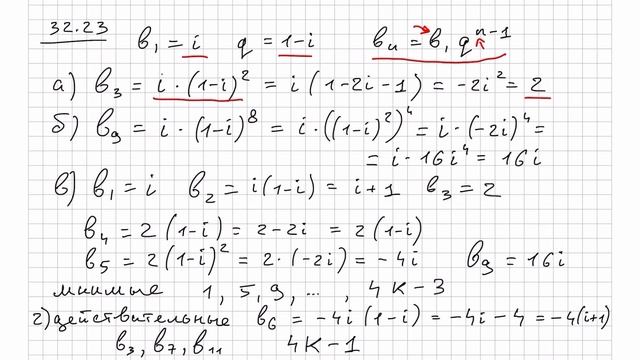 32.23
b₁ = i   q = 1-i   bₙ = b₁ qⁿ⁻¹
а) b₃ = i · (1-i)² = i (1-2i-1) = -2i² = 2
б) b₉ = i · (1-i)⁸ = i · ((1-i)²)⁴ = i · (-2i)⁴ =
= i · 16i⁴ = 16i
в) b₁ = i   b₂ = i(1-i) = i+1   b₃ = 2
b₄ = 2 (1-i) = 2-2i = 2(1-i)
b₅ = 2(1-i)² = 2·(-2i) = -4i   b₉ = 16i
мнимые 1, 5, 9, ..., 4к-3
г) действительные b₆ = -4i (1-i) = -4i-4 = -4(i+1)
b₃, b₇, b₁₁   4к-1